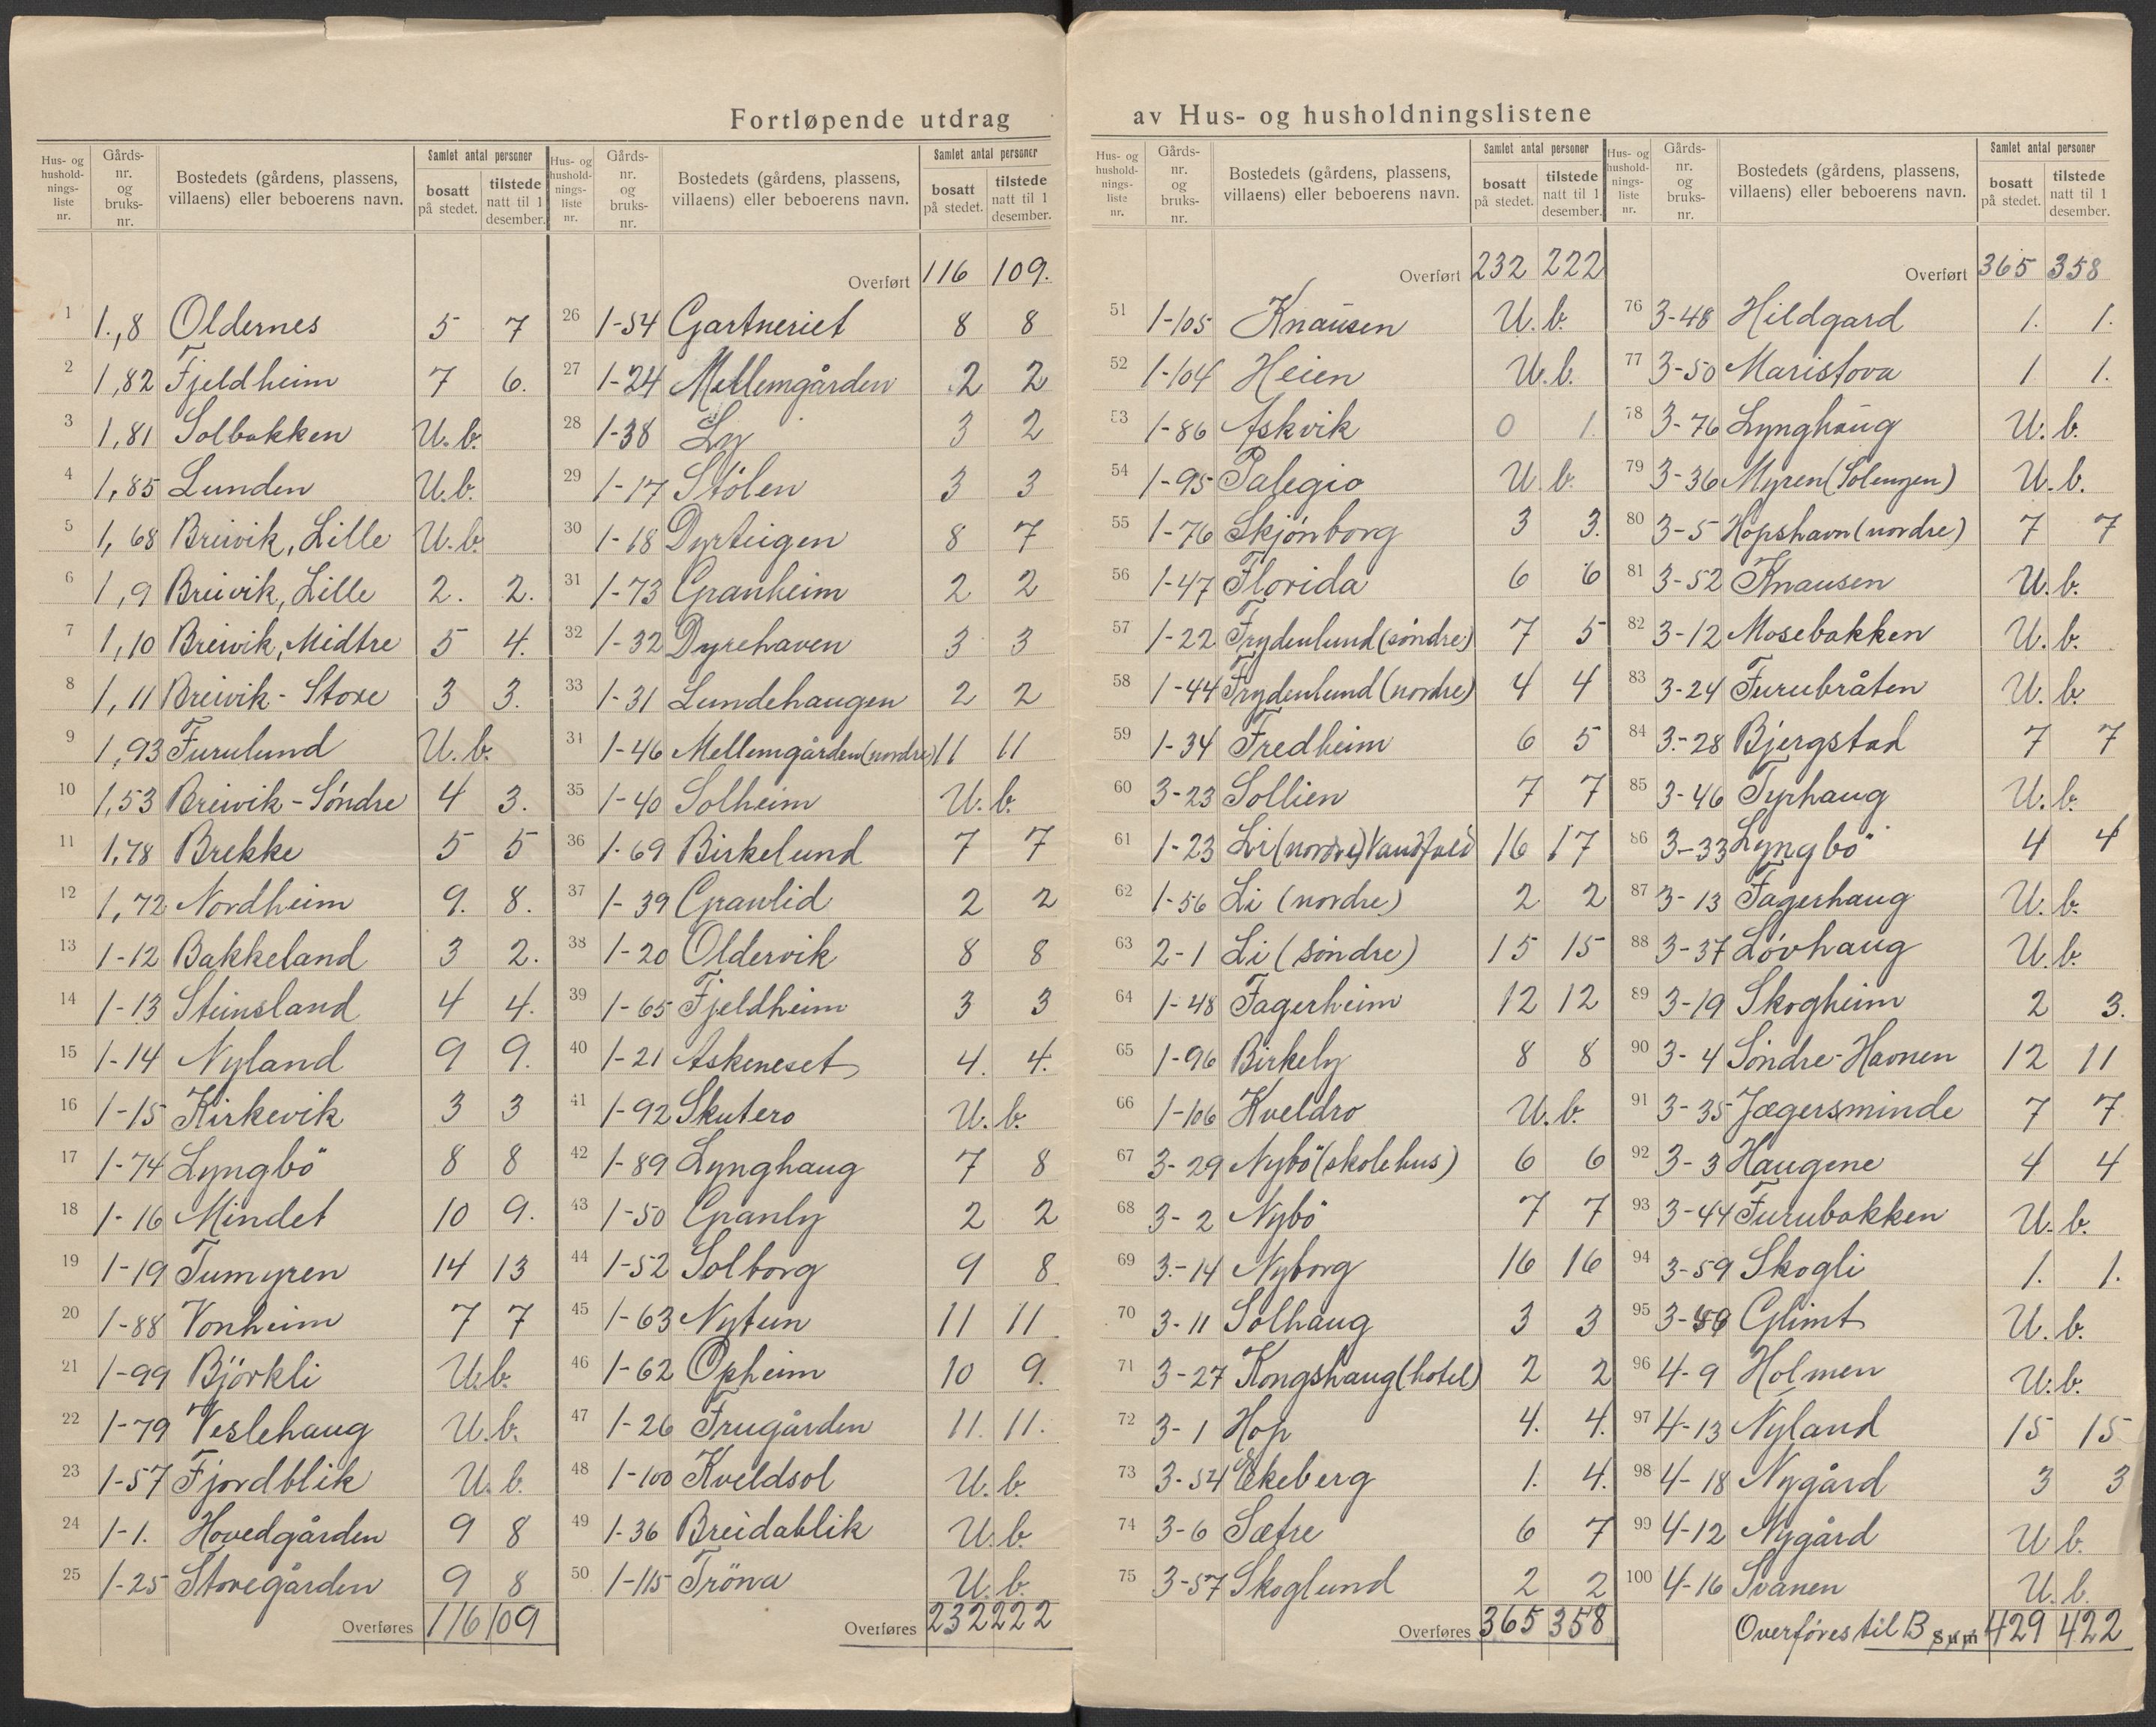 Fortløpende utdrag av Hus- og husholdningslistene
Hus- og hushold-nings-liste nr. Gårds-nr. og bruks-nr. Bostedets (gårdens, plassens, villaens) eller beboerens navn. Samlet antal personer bosatt på stedet. tilstede natt til 1 desember.
1 1.,8 Oldernes 5 7
2 1,82 Fjeldheim 7 6.
3 1,81 Solbakken U.b.
4 1,85 Lunden U.b.
5 1,68 Breivik, Lille U.b.
6 1,9 Breivik, Lille 2. 2.
7 1,10 Breivik, Midtre 5 4.
8 1,11 Breivik - Store 3 3.
9 1,93 Furulund U.b.
10 1,53 Breivik - Söndre 4 3.
11 1,78 Brekke 5 5
12 1,72 Nordheim 9. 8.
13 1-12 Bakkeland 3 2.
14 1-13 Steinsland 4 4.
15 1-14 Nyland 9 9.
16 1-15 Kirkevik 3 3
17 1-74 Lyngbö 8 8
18 1-16 Mindet 10 9.
19 1-19 Tumyren 14 13
20 1-88 Vonheim 7 7
21 1-99 Björkli U.b.
22 1-79 Veslehaug U.b.
23 1-57 Fjordblik U.b.
24 1-1. Hovedgården 9 8
25 1-25 Storegården 9 8
Overføres 116 109
Hus- og hushold-nings-liste nr. Gårds-nr. og bruks-nr. Bostedets (gårdens, plassens, villaens) eller beboerens navn. Samlet antal personer bosatt på stedet. tilstede natt til 1 desember.
Overført 116 109.
26 1-54 Gartneriet 8 8
27 1-24 Mellemgården 2 2
28 1-38 Ly 3 2
29 1-17 Stölen 3 3
30 1-18 Dyrteigen 8 7
31 1-73 Granheim 2 2
32 1-32 Dyrehaven 3 3
33 1-31 Lundehaugen 2 2
34 1-46 Mellemgården (nordre) 11 11
35 1-40 Solheim U.b.
36 1-69 Birkelund 7 7
37 1-39 Granlid 2 2
38 1-20 Oldervik 8 8
39 1-65 Fjeldheim 3 3
40 1-21 Askeneset 4. 4.
41 1-92 Skutero U.b.
42 1-89 Lynghaug 7 8
43 1-50 Granly 2 2
44 1-52 Solborg 9 8
45 1-63 Nytun 11 11
46 1-62 Opheim 10 9.
47 1-26 Frugården 11. 11.
48 1-100 Kveldsol U.b.
49 1-36 Breidablik U.b.
50 1-115 Tröna U.b.
Overføres 232 222
Hus- og hushold-nings-liste nr. Gårds-nr. og bruks-nr. Bostedets (gårdens, plassens, villaens) eller beboerens navn. Samlet antal personer bosatt på stedet. tilstede natt til 1 desember.
Overført 232 222
51 1-105 Knausen U.b.
52 1-104 Heien U.b.
53 1-86 Askvik 0 1.
54 1-95 Palegio U.b.
55 1-76 Skjönborg 3 3.
56 1-47 Florida 6 6
57 1-22 Frydenlund (söndre) 7 5
58 1-44 Frydenlund (nordre) 4 4
59 1-34 Fredheim 6 5
60 3-23 Sollien 7 7
61 1-23 Li (nordre) 16 17
62 1-56 Li (nordre) 2 2
63 2-1 Li (söndre) 15 15
64 1-48 Fagerheim 12 12
65 1-96 Birkely 8 8
66 1-106 Kveldro U.b.
67 3-29 Nybö (skolehus) 6 6
68 3-2 Nybö 7 7
69 3.-14 Nyborg 16 16
70 3-11 Solhaug 3 3
71 3-27 Kongshaug (hotel) 2 2
72 3-1 Hop 4. 4.
73 3-54 Ekeberg 1. 4.
74 3-6 Sætre 6 7
75 3-57 Skoglund 2 2
Overføres 365 358
Hus- og hushold-nings-liste nr. Gårds-nr. og bruks-nr. Bostedets (gårdens, plassens, villaens) eller beboerens navn. Samlet antal personer bosatt på stedet. tilstede natt til 1 desember.
Overført 365 358
76 3-48 Hildgard 1. 1.
77 3-50 Maristova 1 1.
78 3-76 Lynghaug U.b.
79 3-36 Myren (Solengen) U.b.
80 3-5 Hopshavn (nordre) 7 7
81 3-52 Knausen U.b.
82 3-12 Mosebakken U.b.
83 3-24 Furubråten U.b.
84 3.-28 Bjergstad 7 7
85 3-46 Tyrhaug U.b.
86 3-33 Lyngbö 4 4
87 3-13 Fagerhaug U.b.
88 3-37 Lövhaug U.b.
89 3-19 Skogheim 2 3.
90 3-4 Söndre-Havnen 12 11
91 3-35 Jægersminde 7 7
92 3-3 Haugene 4 4
93 3-44 Furubakken U.b.
94 3-59 Skogli 1. 1.
95 Glimt U.b.
96 4-9 Holmen U.b.
97 4-13 Nyland 15 15
98 4-18 Nygård 3 3
99 4-12 Nygård U.b.
100 4-16 Svanen U.b.
Overföres til B sum 429 422